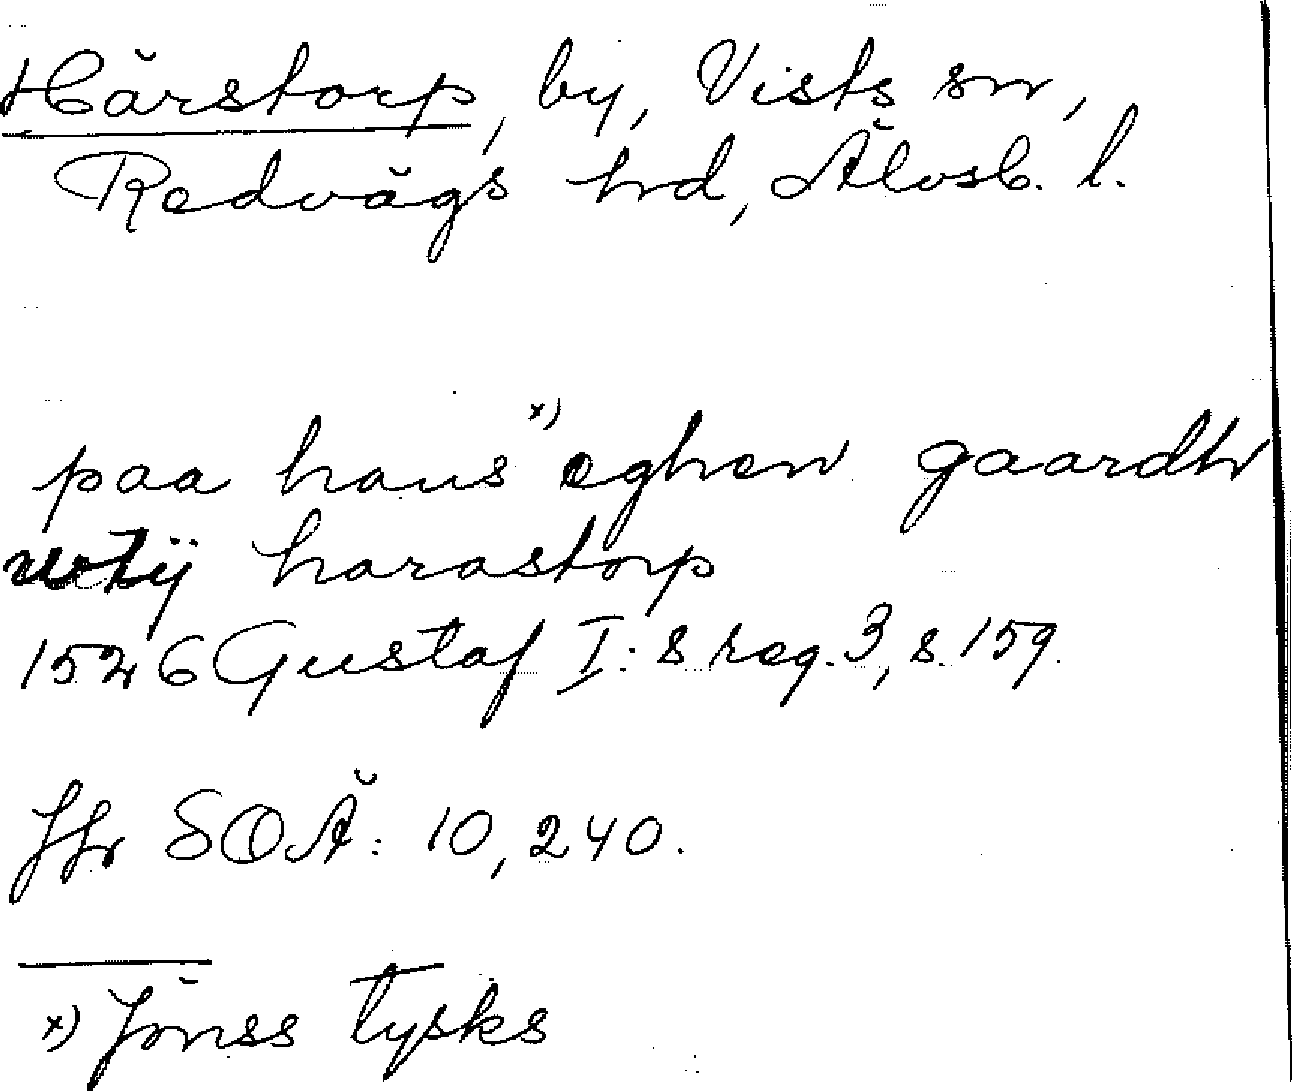 Härstorp, by, Vists sn,
Redvägs hd, Älvsb. l.
paa hans x) eghen gaardh
wtij harastorp
1526 Gustaf I:s reg. 3, s. 159.
Jfr SOÄ: 10, 240.
x) Jönss tysks